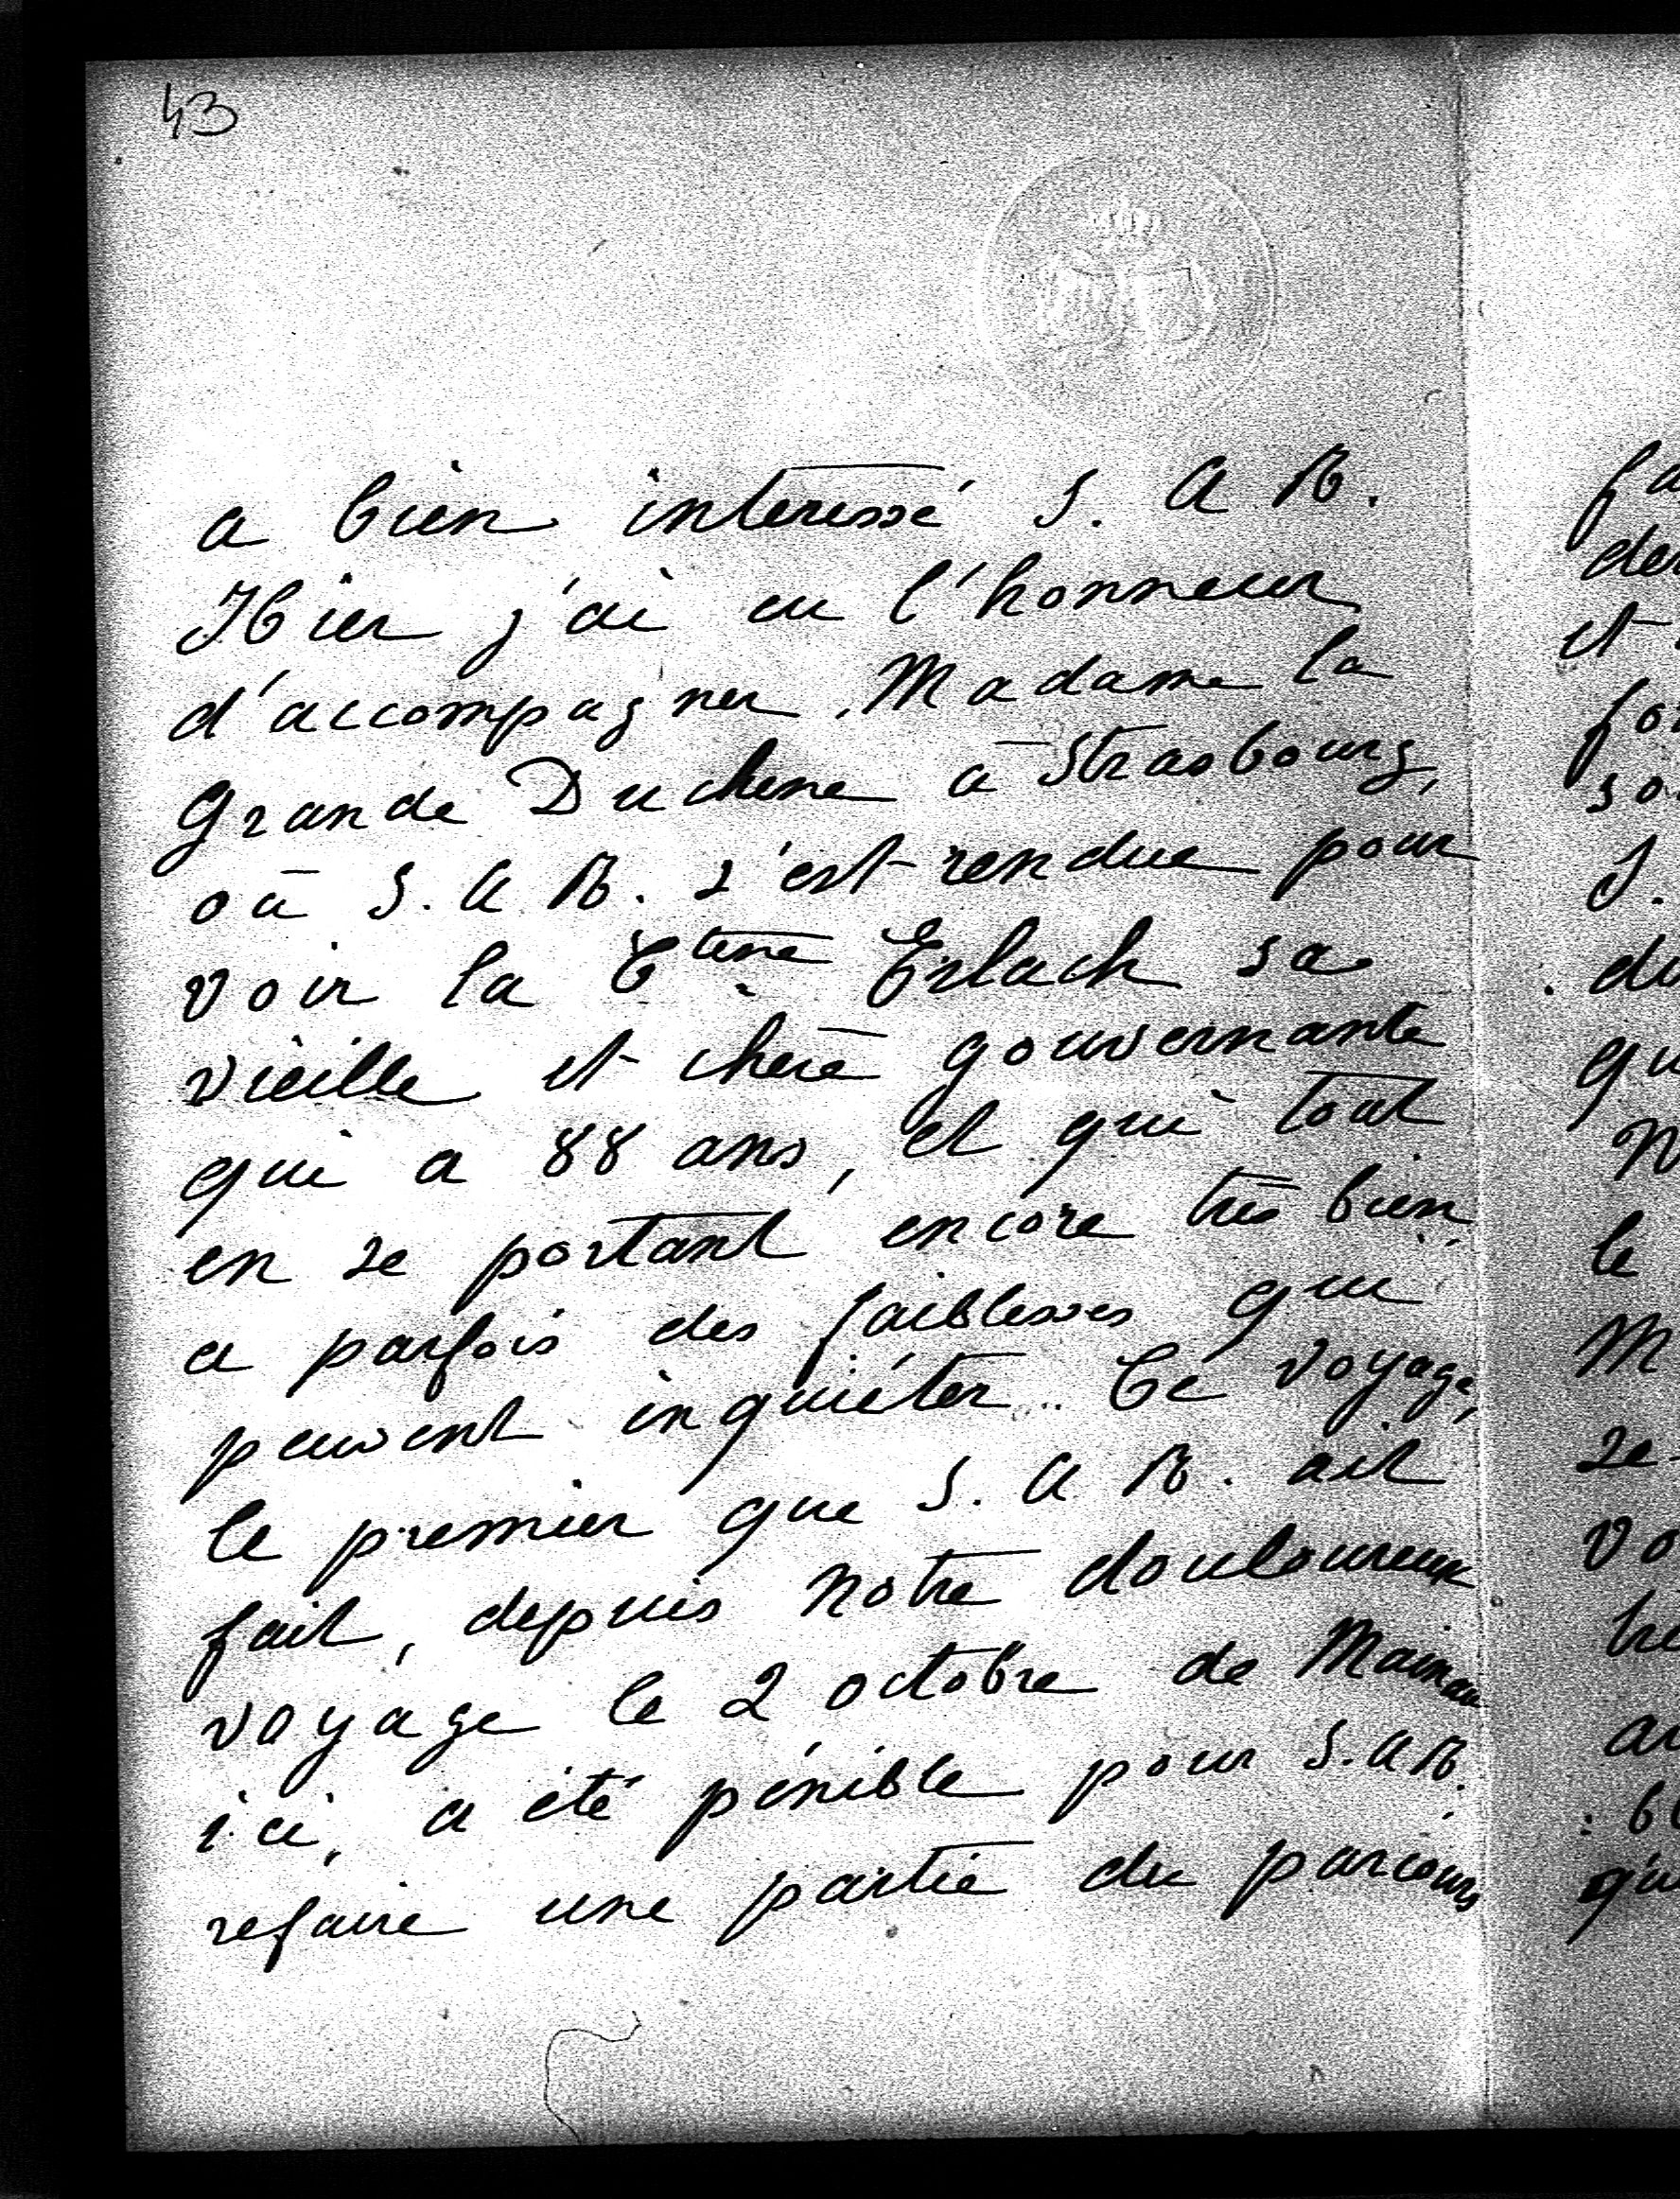 43
a bien interessé S. A. R.
Hier j'ai eu l'honneur
d'accompagner Madame la
Grande Duchesse à Strasbourg,
où S. A. R. s'est rendue pour
voir la Ctesse Erlach sa
vieille et chère gouvernante
qui a 88 ans, et qui tout
en se portant encore très bien
a parfois des faiblesses qui
peuvent inquiéter. Ce voyage,
le premier que S. A. R. ait
fait, depuis notre douloureux
voyage le 2 octobre de Mainau
ici, a été pénible pour S. A. R.
refaire une partie du parcours